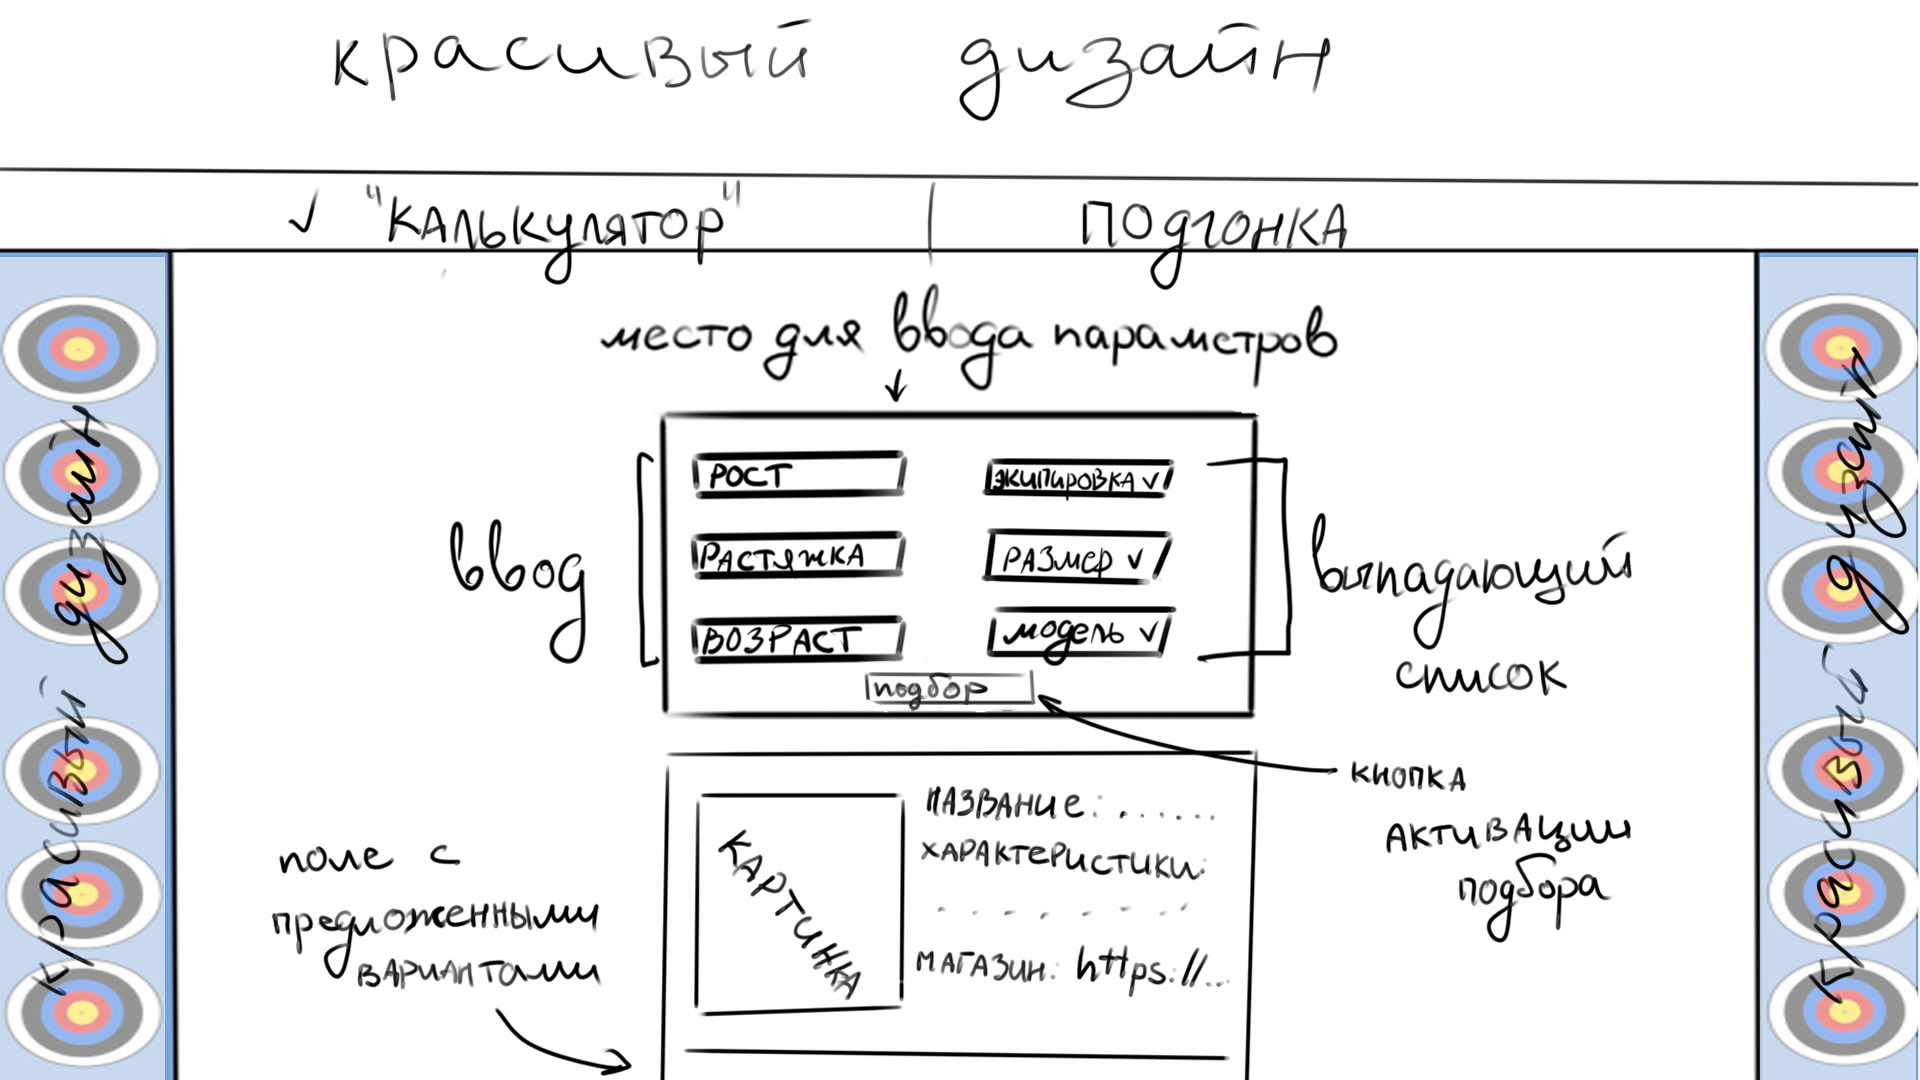 красивый дизайн
✓ "КАЛЬКУЛЯТОР" | ПОДГОНКА
место для ввода параметров
ввод
РОСТ
РАСТЯЖКА
ВОЗРАСТ
ЭКИПИРОВКА ✓
РАЗМЕР ✓
МОДЕЛЬ ✓
подбор
выпадающий
список
кнопка
активации
подбора
поле с
предложенными
вариантами
КАРТИНКА
НАЗВАНИЕ: ......
ХАРАКТЕРИСТИКИ:
. . . . . . . .
МАГАЗИН: https://...
красивый дизайн
красивый дизайн